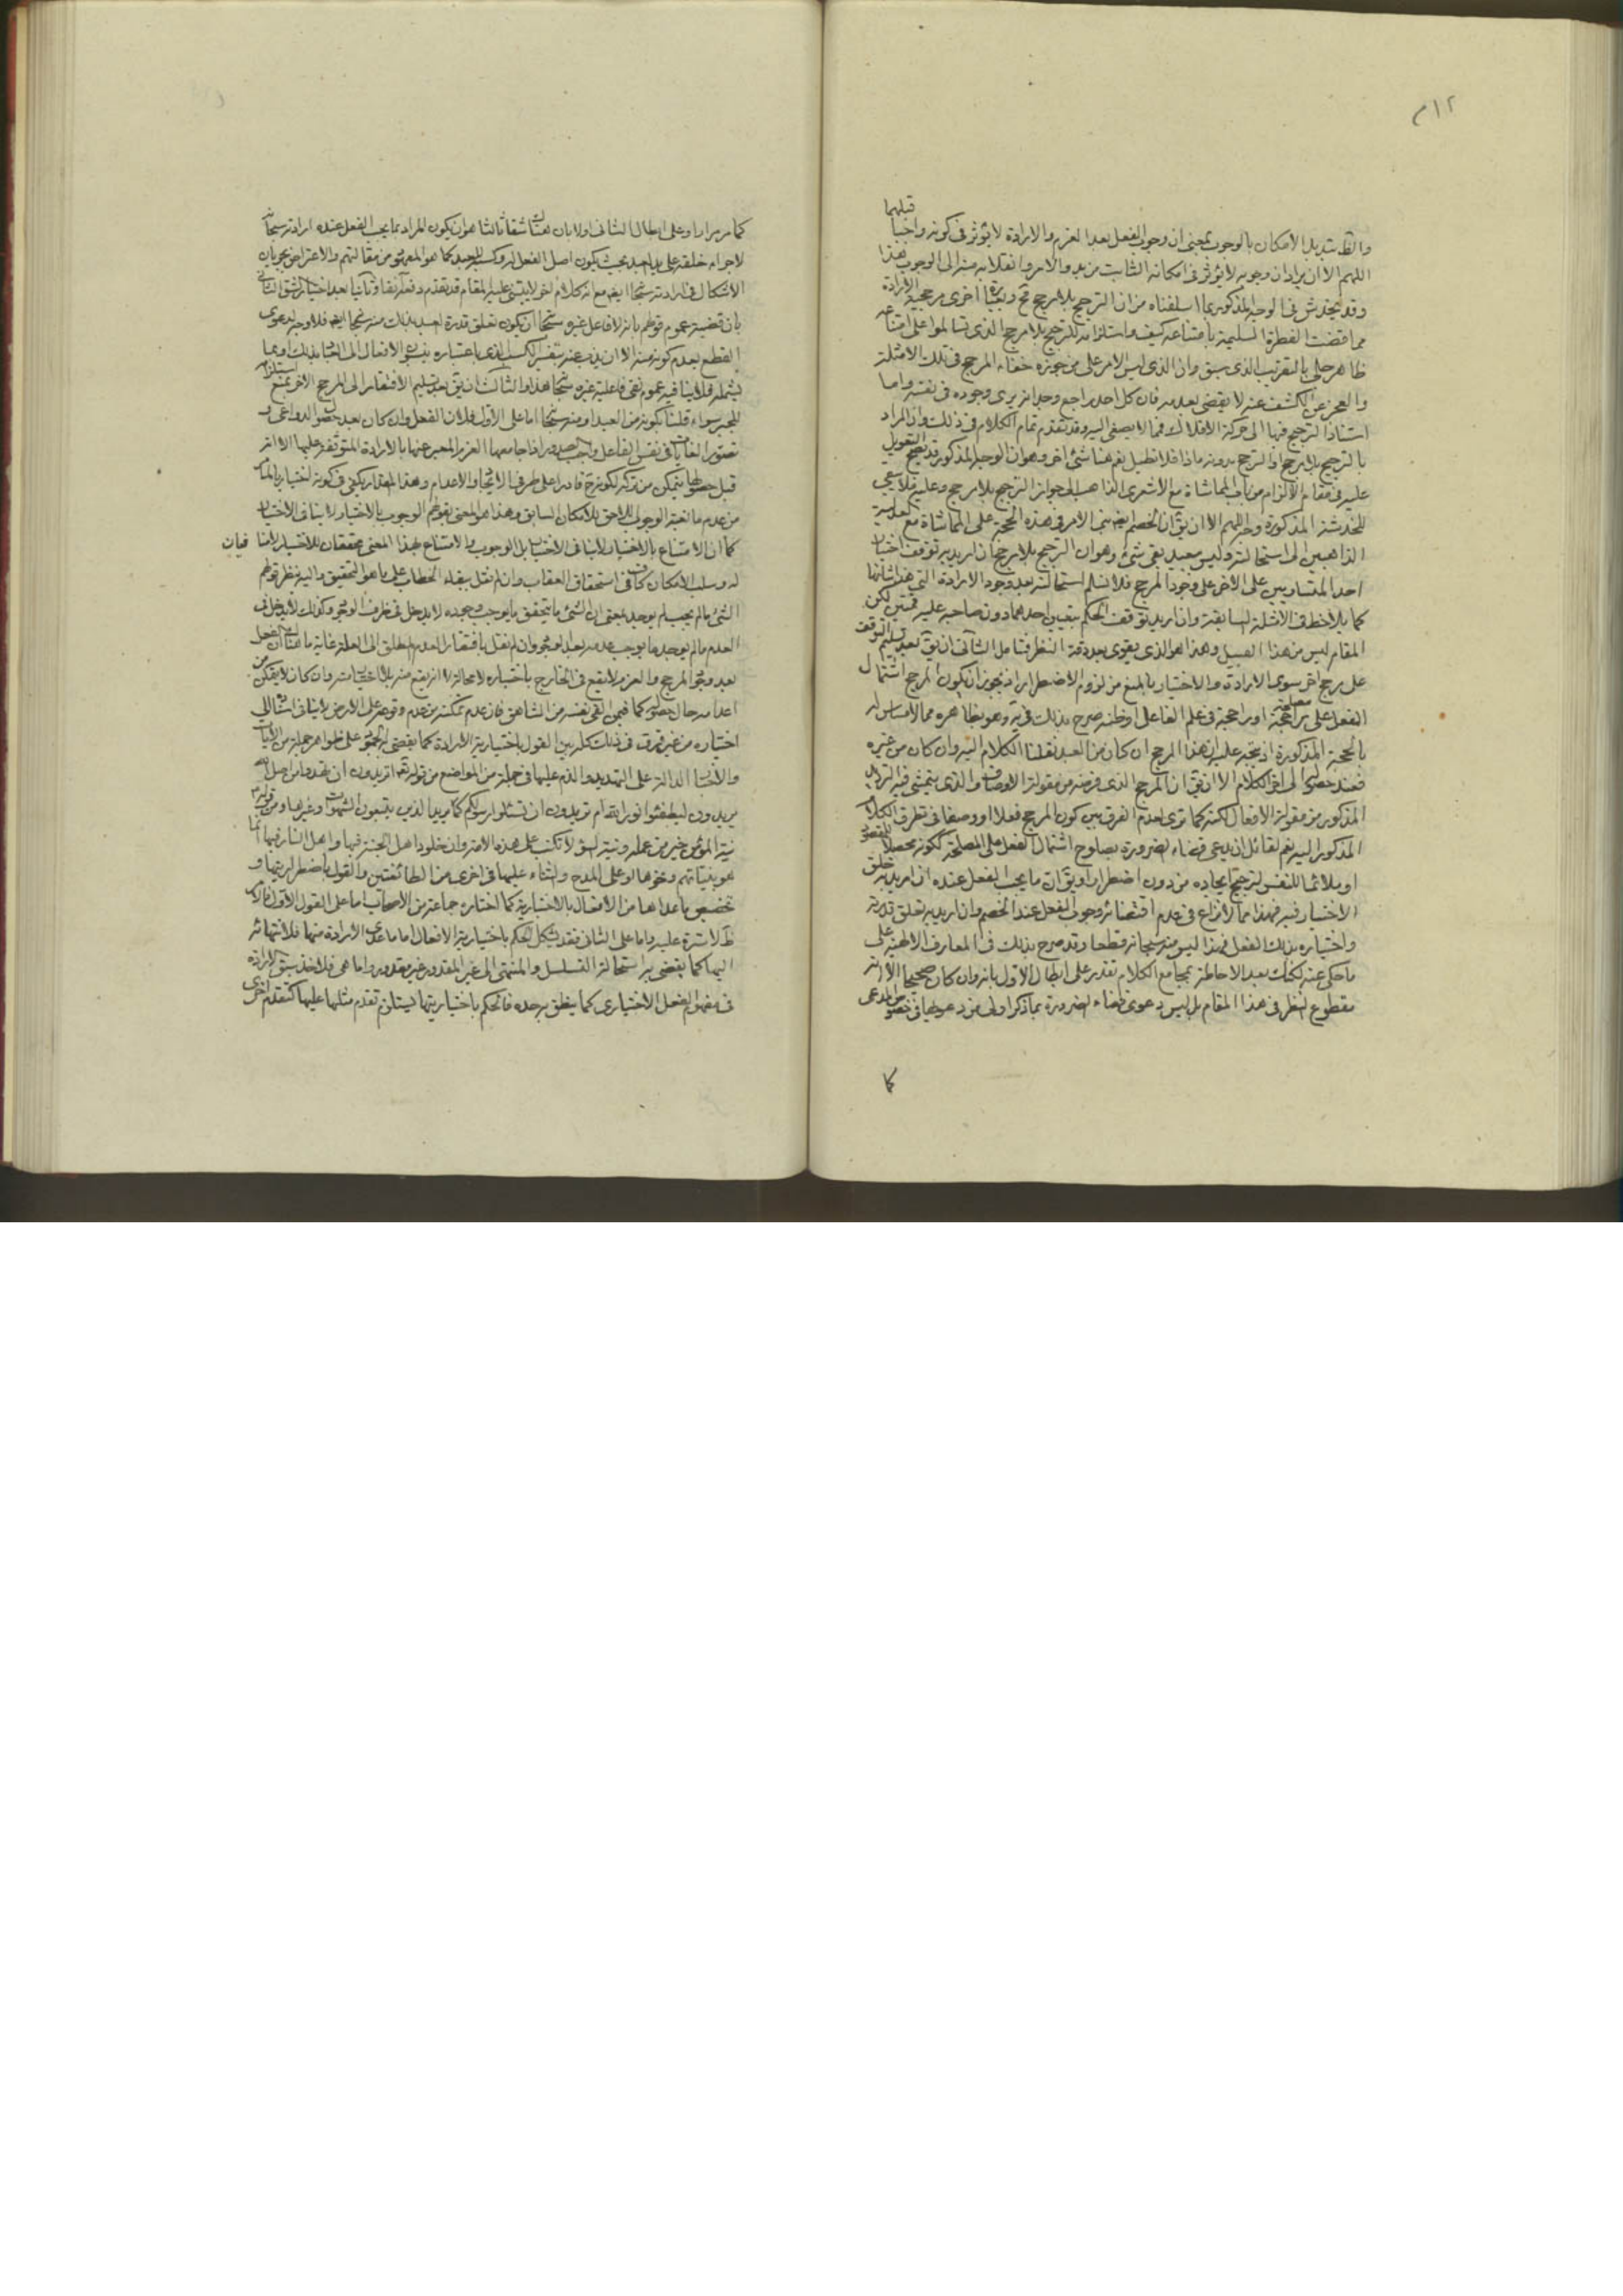 ٢١٢
قبلهما
والظ تبديل الامكان بالوجوب بمعنى ان وجوب الفعل بعد العزم والارادة لا يؤثر فى كونه واجبا
اللهم الا ان يراد ان وجوبه لا يؤثر فى امكانه الثابت من بدو الامر وانقلابه منه الى الوجوب هذا
وقد يخدش فى الوجه المذكور بما اسلفناه من ان الترجيح بلا مرجح اخرى مرجحية الارادة
مما قضت الفطرة السليمة بامتناعه كيف واستلزامه للترجح بلا مرجح الذى تسالموا على امتناعه
ظاهر جلى بالتقريب الذى سبق وان الذى ليس الامر على من جوزه خفاء المرجح فى تلك الامثلة
والعجز عن الكشف عنه لا يقضى بعدمه فان كل احد يراجع وجدانه يرى وجوده فى نفسه واما
استناد الترجيح فيها الى حركة الافلاك فمما لا يصغى اليه وقد تقدم تمام الكلام فى ذلك وان المراد
بالترجيح بلا مرجح او الترجح بدونه ماذا فلا نطيل نعم هنا شئ اخر وهو ان الوجه المذكور قد يصح التعويل
عليه فى مقام الالزام من باب المماشاة مع الاشعرى الذاهب الى جواز الترجيح بلا مرجح وعليه فلا يبقى
للخدشة المذكورة وجه اللهم الا ان يق ان الخصم لم يبن الامر فى هذه الحجة على المماشاة مع العدلية
الذاهبين الى استحالته وليس ببعيد بقى شئ وهو ان الترجيح بلا مرجح ان اريد به توقف اختيار
احد المتساويين على الاخر على وجود المرجح فلا نسلم استحالته بعد وجود الارادة التى هذا شانها
كما يلاحظ فى الامثلة السابقة وان اريد توقف الحكم بتعيين احدهما دون صاحبه عليه فمتين لكن
المقام ليس من هذا القبيل وهذا هو الذى يقوى بعد دقة النظر فتامل الثانى ان يق بعد تسليم التوقف
على مرجح اخر سوى الارادة والاختيار بالمنع من لزوم الاضطرار اذ يجوز ان يكون المرجح اشتمال
الفعل على مصلحة او راجحية فى علم الفاعل او ظنه صرح بذلك فى يه وهو بظاهره مما لا مساس له
بالحجة المذكورة اذ يتجه عليه ان هذا المرجح ان كان من العبد نقلنا الكلام اليه وان كان من غيره
فعند حصوله الى اخر الكلام الا ان يق ان المرجح الذى فرضه من مقولة الاوصاف والذى يتمشى فيه الترديد
المذكور من مقولة الافعال لكنه كما ترى لعدم الفرق بين كون المرجح فعلا او وصفا فى تطرق الكلام
المذكور اليه نعم لقائل ان يدعى قضاء الضرورة بصلوح اشتمال الفعل على المصلحة ككونه محصلا للمقصود
او ملائما للنفس لترجيح ايجاده من دون اضطرار او يق ان ما يجب الفعل عنده ان اريد به خلق
الاختيار فيه فهذا مما لا نزاع فى عدم اقتضائه وجوب الفعل عند الخصم وان اريد به تعلق قدرته
واختياره بذلك الفعل فهذا ليس منه سبحانه قطعا وقد صرح بذلك فى المعارف الالهية على
ما حكى عنه لكنك بعد الاحاطة بمجامع الكلام تقدر على ابطال الاول بانه وان كان صحيحا الا انه
مقطوع النظر فى هذا المقام بل ليس دعوى قضاء الضرورة بما ذكر اولى من دعواها فى خصوص المدعى
كما
كما مر مرارا وعلى ابطال الثانى اولا بان هناك شقا ثالثا هو ان يكون المراد بما يجب الفعل عنده ارادته سبحانه
لاجراء خلقه على يد العبد بحيث يكون اصل الفعل له وكسبه للعبد كما هو المعهود من مقالتهم والاعتراض بجريان
الاشكال فى ارادته سبحانه ايضا مع انه كلام اخر لا يبتنى عليه المقام قد تقدم دفعه انفا وثانيا بعد اختيار الشق الثانى
بان قضية عموم قولهم بانه لا فاعل غيره سبحانه ان يكون تعلق قدرة العبد بذلك منه سبحانه ايضا فلا وجه لدعوى
القطع بعدم كونه منه الا ان يذب عنه بتفسير الكسب الذى باعتباره ينسب الافعال الى العباد بذلك او بما
يشمله فلا ينافيه عموم نفى فاعلية غيره سبحانه هذا والثالث ان يق بعد تسليم الافتقار الى المرجح الاخر بمنع استلزامه
للجبر سواء قلنا بكونه من العبد او منه سبحانه اما على الاول فلان الفعل وان كان بعد حصول الدواعى و
تصور الغايات فى نفس الفاعل واجب الصدور اذا جامعها العزم المعبر عنها بالارادة المتوقفة عليها الا انه
قبل حصولها يتمكن من تركه لكونه ح قادرا على طرفى الايجاد والاعدام وهذا المقدار يكفى فى كونه اختياريا
من عدم مانعية الوجوب اللاحق للامكان السابق وهذا هو المعنى بقولهم الوجوب بالاختيار لا ينافى الاختيار
كما ان الامتناع بالاختيار لا ينافى الاختيار بل الوجوب والامتناع بهذا المعنى محققان للاختيار لا منافيان
له وسلب الامكان كاف فى استحقاق العقاب وان لم نقل ببقاء الخطاب على ما هو التحقيق واليه ينظر قولهم
الشئ ما لم يجب لم يوجد بمعنى ان الشئ ما لم يتحقق ما يوجب وجوده لا يدخل فى ظرف الوجود وكذلك لا يدخل فى
العدم ما لم يوجد ما يوجب عدمه بعد الوجود وان لم نقل بافتقار العدم المطلق الى العلة غاية ما هناك ان الفعل
بعد وجود المرجح والعزم لا يقع فى الخارج باختياره لا محالة لا انه يقع منه بلا اختيار منه وان كان لا يتمكن من
اعدامه حال حصوله كما فيمن القى نفسه من الشاهق فان عدم تمكنه من عدم وقوعه على الارض لا ينافى استناده الى
اختياره من غير فرق فى ذلك كله بين القول باختيارية الارادة كما يقضى به الجمود على ظواهر جملة من الايات
والاخبار الدالة على التهديد والذم عليها فى جملة من المواضع من قوله تعالى اتريدون ان تهدوا من اضل الله
يريدون ليطفئوا نور الله ام تريدون ان تسئلوا رسولكم كما يريد الذين يتبعون الشهوات وغيرها ومن قوله ع
نية المؤمن خير من عمله ونية السوء لا تكتب على هذه الامة وان خلود اهل الجنة فيها واهل النار فيها انما
هو بنياتهم ونحوها او على المدح والثناء عليها فى اخرى من الطائفتين والقول باضطراريتها و
تخصيص ما عداها من الافعال بالاختيارية كما اختاره جماعة من الاصحاب اما على القول الاول فالامر
ظ لا سترة عليه واما على الثانى فقد يشكل الحكم باختيارية الافعال اما ما عدى الارادة منها فلانتهائه
اليها كما يقضى به استحالة التسلسل والمنتهى الى غير المقدور غير مقدور واما هى فلاخذ سبق الارادة
فى مفهوم الفعل الاختيارى كما ينطق به حده فالحكم باختياريتها يستلزم تقدم مثلها عليها كتقدم اخرى